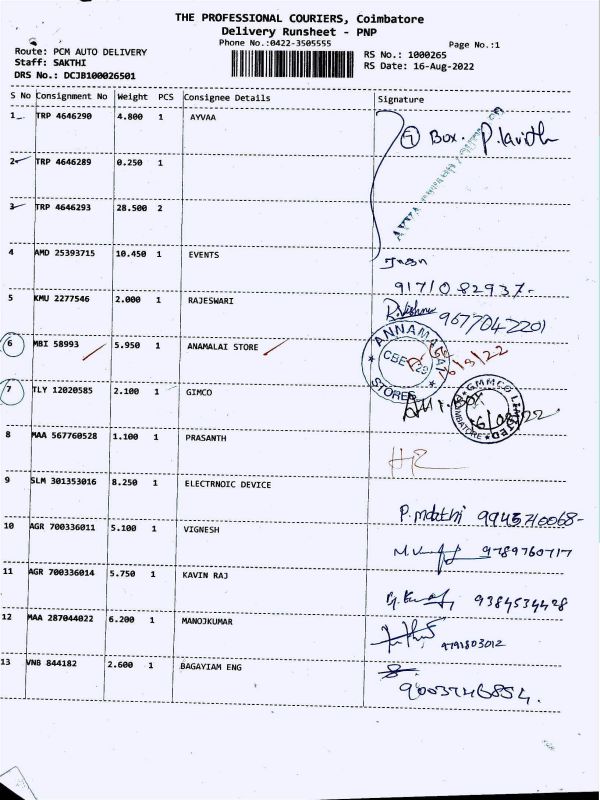 THE PROFESSIONAL COURIERS, Coimbatore
Delivery Runsheet - PNP
Phone No.:0422-3505555
Page No.:1
Route: PCM AUTO DELIVERY
Staff: SAKTHI
DRS No.: DCJB100026501
RS No.: 1000265
RS Date: 16-Aug-2022
S No Consignment No Weight PCS Consignee Details Signature
1 TRP 4646290 4.800 1 AYVAA
7 Box.
2 TRP 4646289 0.250 1
3 TRP 4646293 28.500 2
4 AMD 25393715 10.450 1 EVENTS
9171082937-
5 KMU 2277546 2.000 1 RAJESWARI
9677042201
6 MBI 58993 5.950 1 ANAMALAI STORE
ANNAMALAI STORES
CBE - 29
7 TLY 12020585 2.100 1 GIMCO
GMMCO LIMITED
COIMBATORE
8 MAA 567760528 1.100 1 PRASANTH
9 SLM 301353016 8.250 1 ELECTRNOIC DEVICE
10 AGR 700336011 5.100 1 VIGNESH
9789760717
11 AGR 700336014 5.750 1 KAVIN RAJ
9384534428
12 MAA 287044022 6.200 1 MANOJKUMAR
13 VNB 844182 2.600 1 BAGAYIAM ENG
9003746854.